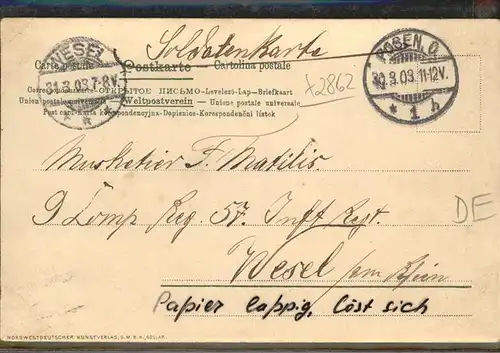 Soldatenkarte
WESEL
31.3.03.7-8V.
* *
Carte postale Postkarte Cartolina postale
POSEN. O.
30.3.03.11-12V.
* 1 h
+2862
Correspondenzkarte — ОТКРЫТОЕ ПИСЬМО — Levelezö-Lap — Briefkaart
Union postale universelle — Weltpostverein — Unione postale universale
Post card-Karta korespondencyjna-Dopisnice-Korespondenční lístek
Musketier F. Matilis.
9 Comp Reg. 57. Inft Regt.
DE
Wesel am Rhein
Papier lappig, löst sich
NORDWESTDEUTSCHER KUNSTVERLAG, G.M.B.H.,